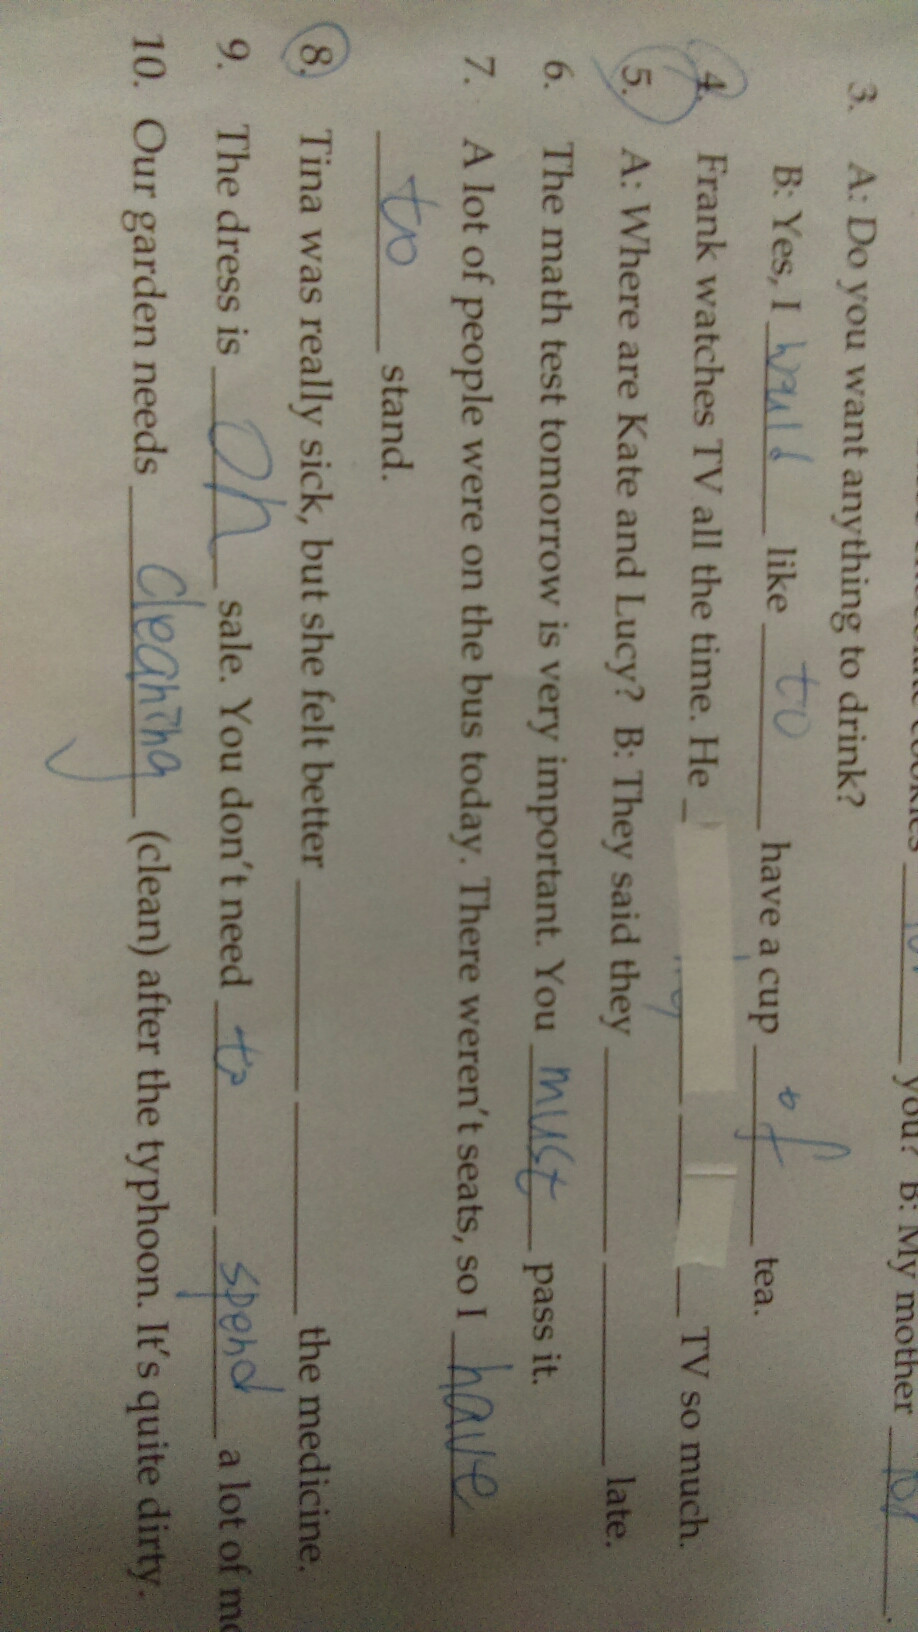 you? B: My mother
3. A: Do you want anything to drink?
B: Yes, I would like to have a cup of tea.
4. Frank watches TV all the time. He TV so much.
5. A: Where are Kate and Lucy? B: They said they late.
6. The math test tomorrow is very important. You must pass it.
7. A lot of people were on the bus today. There weren't seats, so I have
to stand.
8. Tina was really sick, but she felt better the medicine.
9. The dress is on sale. You don't need to spend a lot of
10. Our garden needs cleaning (clean) after the typhoon. It's quite dirty.